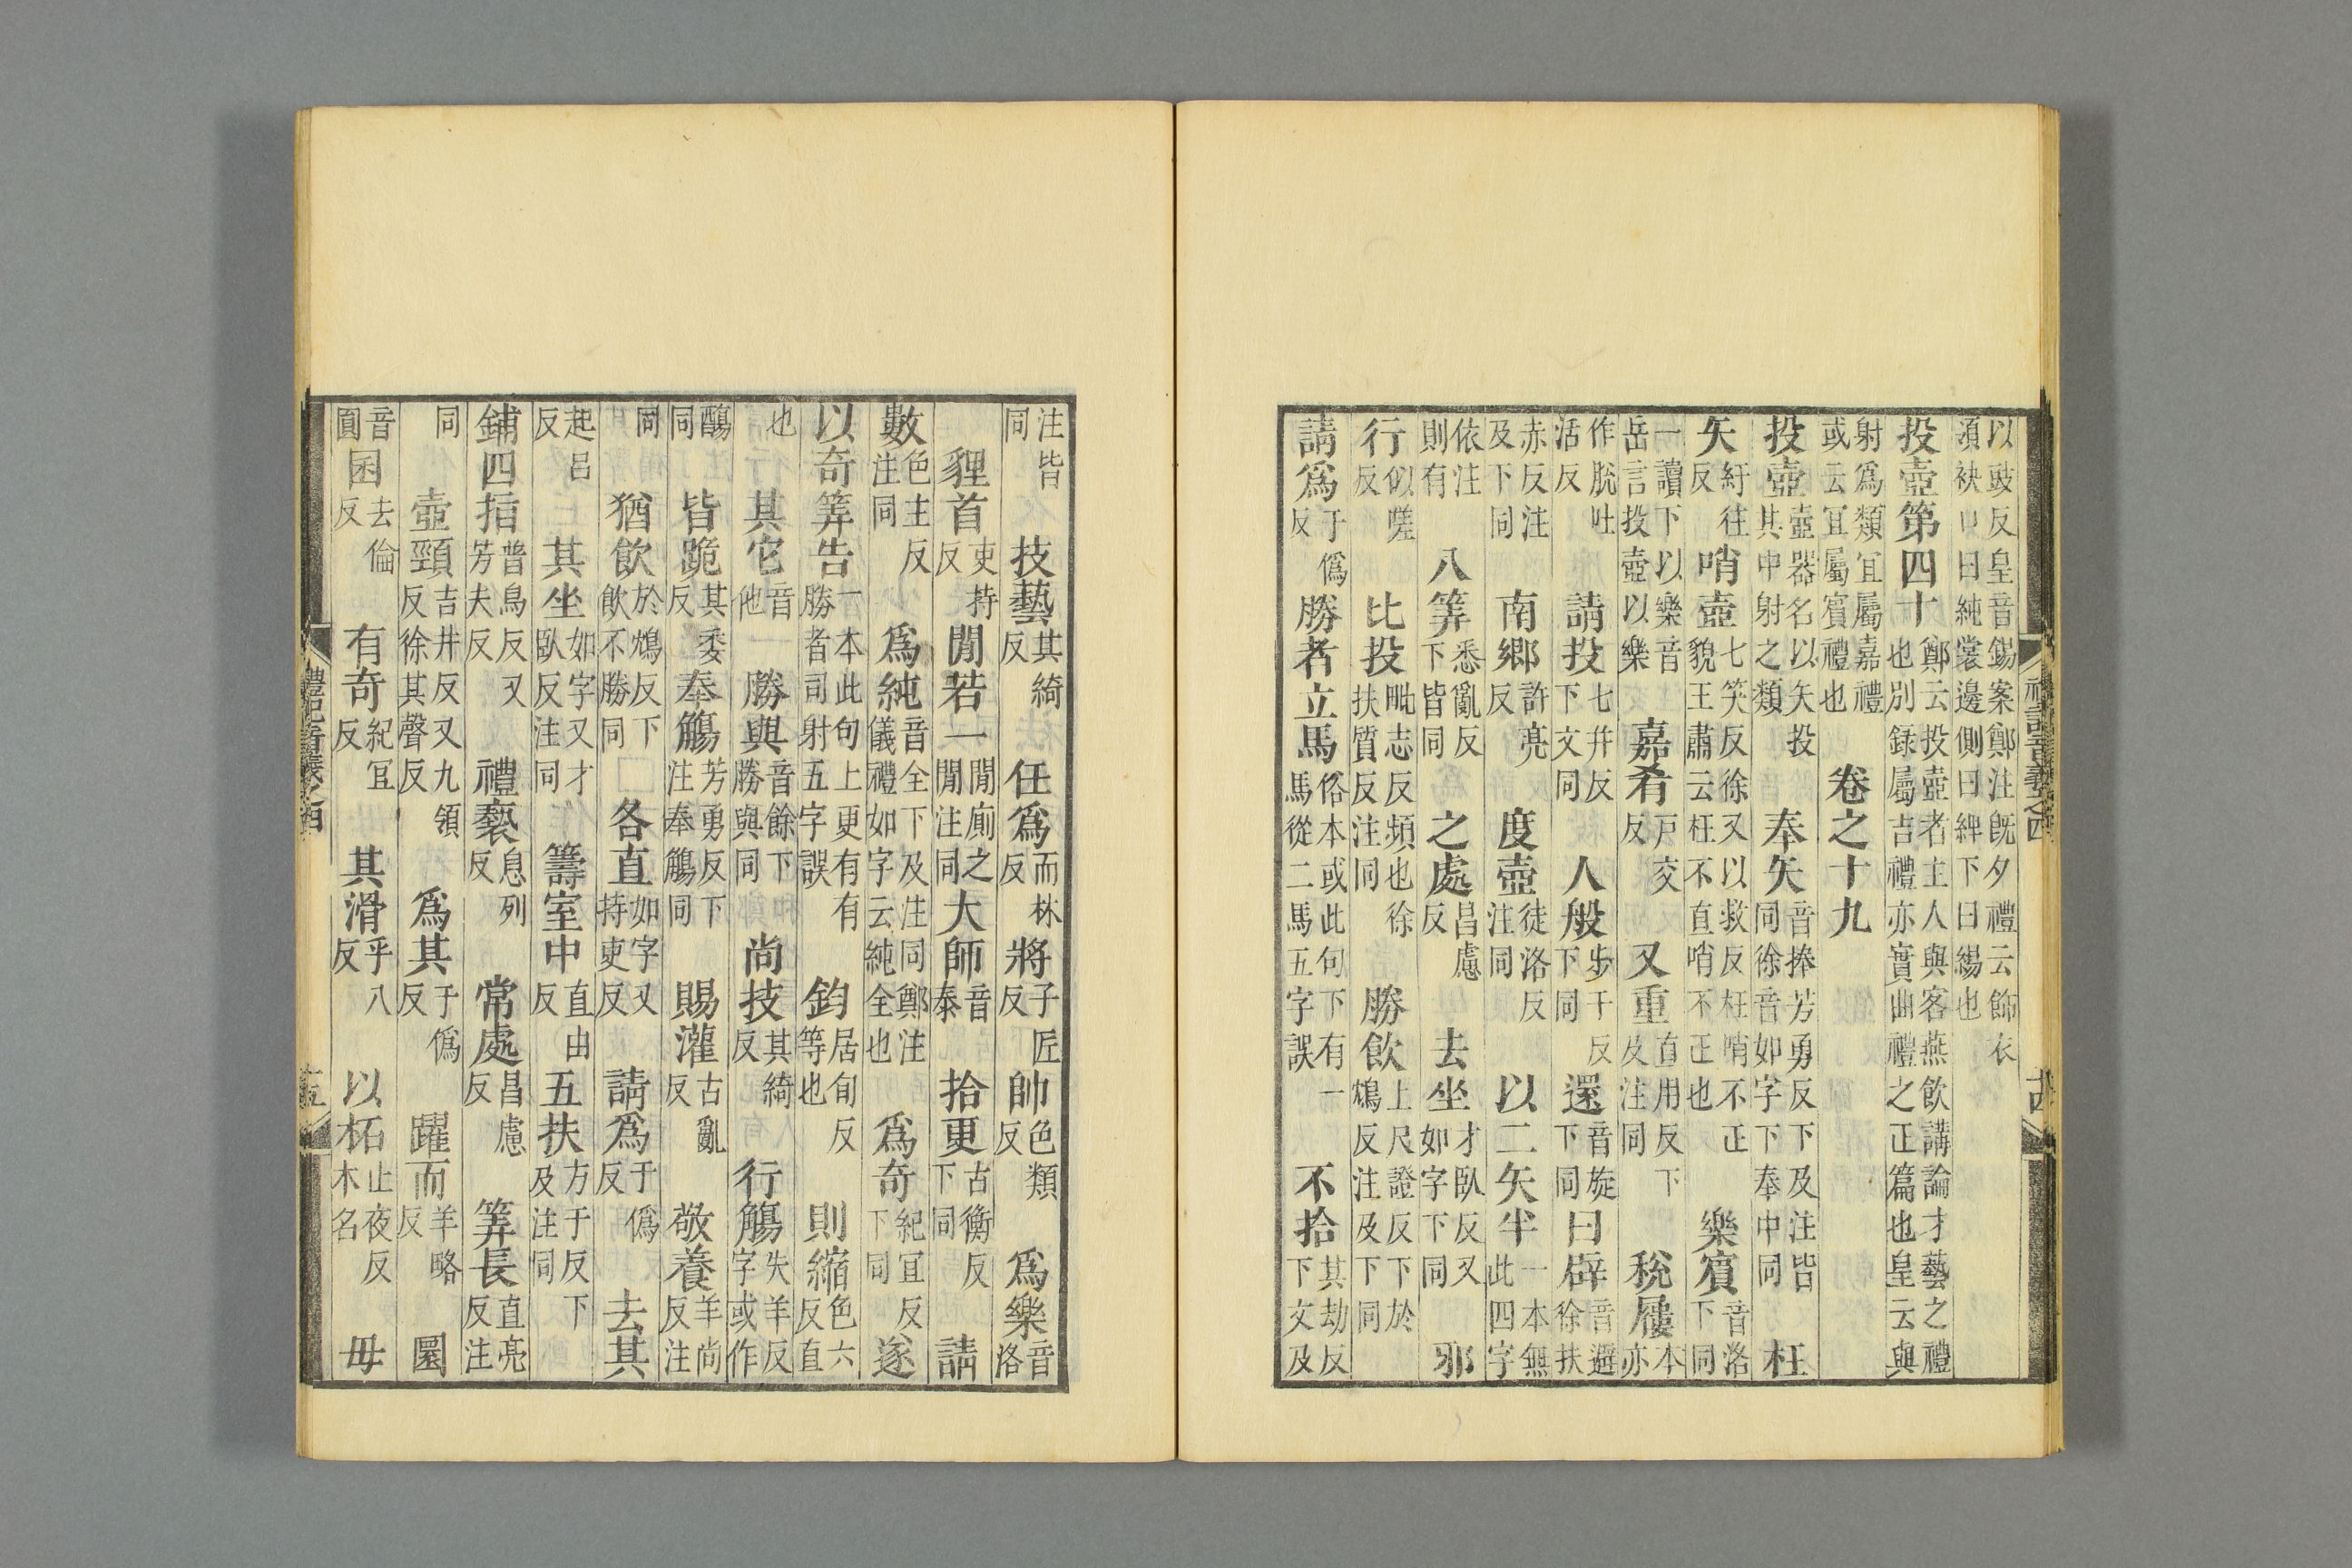 以豉反皇音錫案鄭注旣夕禮云飾衣須袂口曰純裳邊側曰綼下曰緆也
投壺第四十鄭云投壺者主人與客燕飮講論才藝之禮也別錄屬吉禮亦實曲禮之正篇也皇云與
射爲類冝屬嘉禮或云冝屬賓禮也卷之十九
投壺壺器名以矢投其中射之類奉矢音捧芳勇反下及注皆同徐音如字下奉中同枉
矢紆往反哨壺七笑反徐又以救反枉哨不正貌王肅云枉不直哨不正也樂賔音洛下同
一讀下以樂音岳言投壺以樂嘉肴戶交反又重直用反下及注同稅屨本亦
作脫吐活反請投七幷反下文同人般步干反下同還音旋下同曰辟音避徐扶
赤反注及下同南鄉許亮反度壺徒洛反注同以二矢半一本無此四字
依注則有八筭悉亂反下皆同之處昌慮反去坐才臥反又如字下同邪
行似嗟反比投毗志反頻也徐扶質反注同勝飮上尺證反下於鴆反注及下同
請爲于僞反勝者立馬俗本或此句下有一馬從二馬五字誤不拾其劫反下文及
注皆同技藝其綺反任爲而林反將子匠反帥色類反爲樂音洛
貍首吏持反閒若一閒廁之閒注同大師音泰拾更古衡反下同請
數色主反注同爲純音全下及注同鄭注儀禮如字云純全也爲奇紀冝反下同遂
以奇筭告一本此句上更有有勝者司射五字誤鈞居旬反等也則縮色六反直
也其它音他勝與音餘下勝與同尚技其綺反行觴失羊反字或作
醻同皆跪其委反奉觴芳勇反下注奉觴同賜灌古亂反敬養羊尚反注
同猶飮於鴆反下飮不勝同各直如字又持吏反請爲于僞反去其
起呂反其坐如字又才臥反注同籌室中直由反五扶方于反下及注同
鋪四指普鳥反又芳夫反禮褻息列反常處昌慮反筭長直亮反注
同壺頸吉井反又九領反徐其聲反爲其于僞反躍而羊略反圜
音圓囷去倫反有奇紀冝反其滑乎八反以柘止夜反木名毋